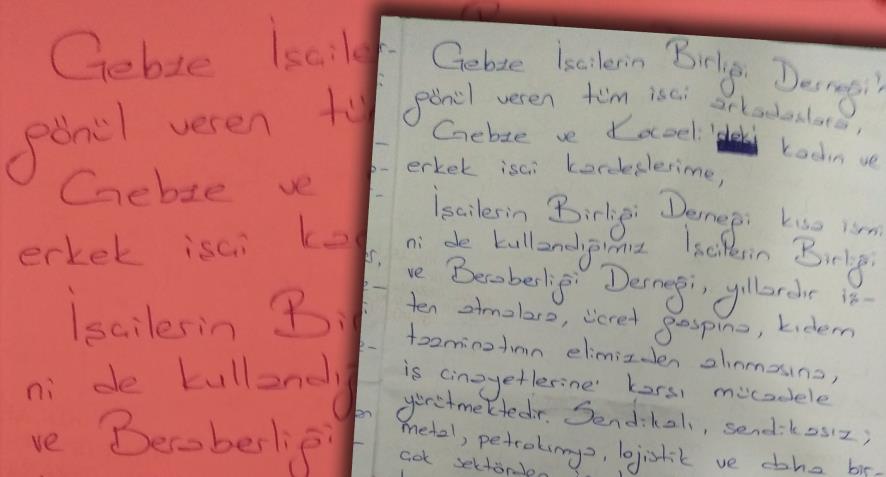 Gebze İşciler
gönül veren tü
Gebze ve
erkek işci ka
İşcilerin Bir
ni de kullandığ
ve Beraberliği
Gebze İscilerin Birliği Derneği'
gönül veren tüm isci arkadaslara,
Gebze ve Kocaeli'deki kadın ve
erkek isci kardeslerime,
İscilerin Birliği Derneği kısa ismi
ni de kullandığımız İscilerin Birliği
ve Beraberliği Derneği, yıllardır iş-
ten atmalara, ücret gaspına, kıdem
tazminatının elimizden alınmasına,
iş cinayetlerine karsı mücadele
yürütmektedir. Sendikalı, sendikasız;
metal, petrokimya, lojistik ve daha bir-
çok sektörden